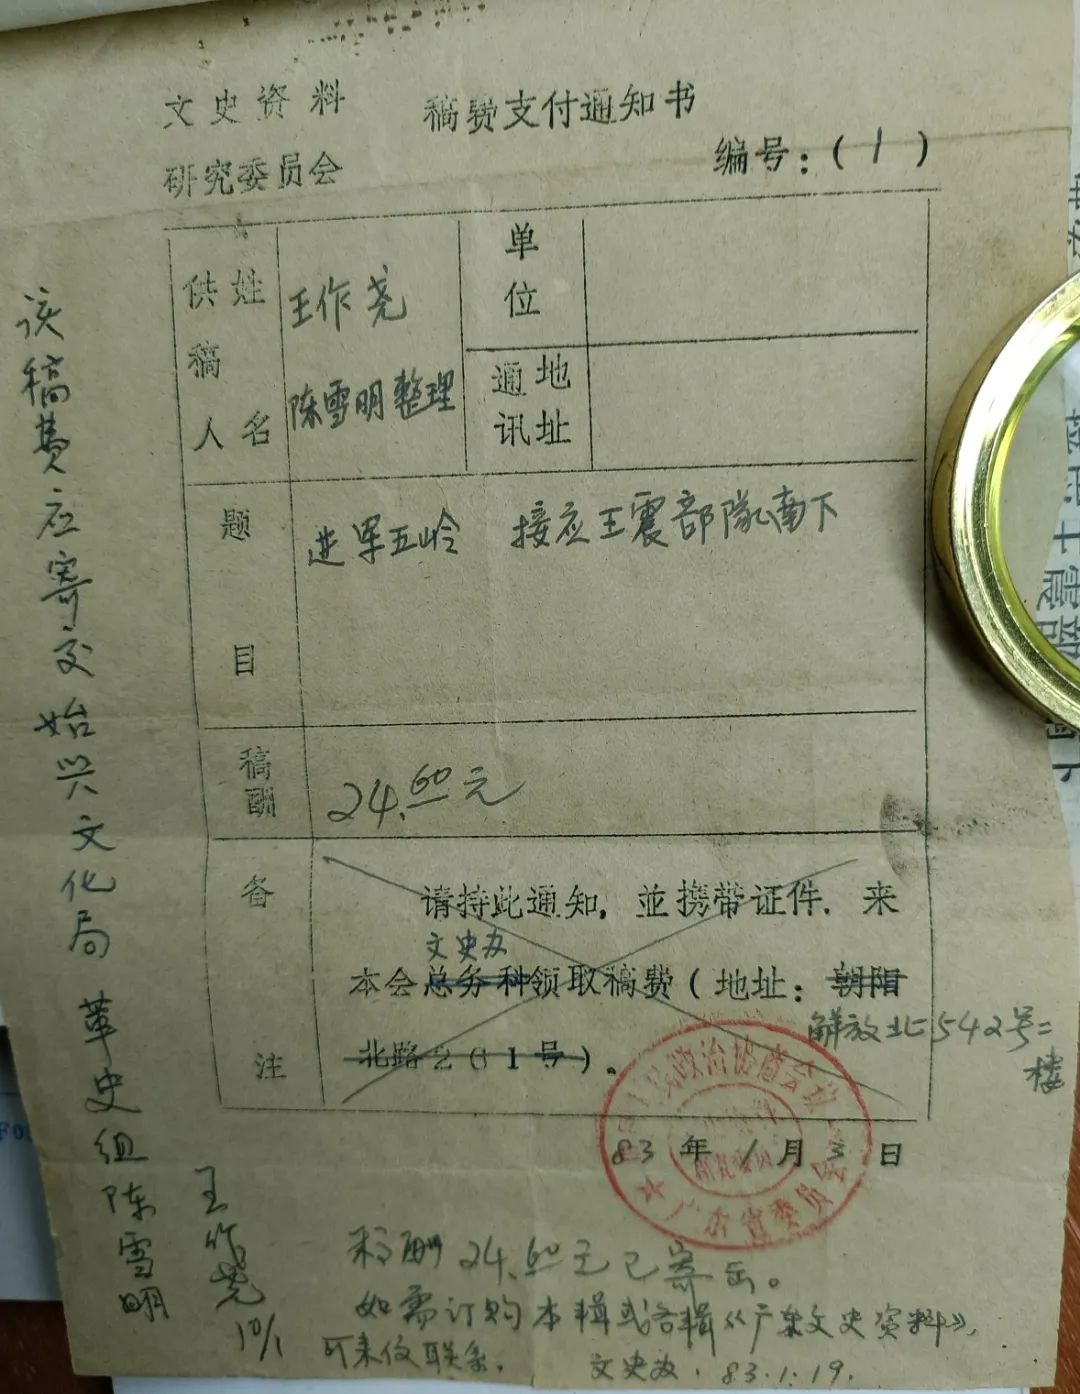 文史资料
研究委员会
稿费支付通知书
编号：（1）
供稿人 姓名
王作尧
陈雪明整理
单位
通讯 地址
题目
进军五岭 接应王震部隊南下
稿酬
24.60元
备注
请持此通知，並携带证件．来
文史办
本会总务科领取稿费（地址：朝阳
解放北542号二楼
北路261号）。
人民政治协商会议
广东省委员会
83年1月3日
该稿费应寄交始兴文化局革史组陈雪明
王作尧
10/1
稿酬24.60元已寄出。
如需订购本辑或各辑《广东文史资料》，
可来仪联系．
文史办．83.1.19.